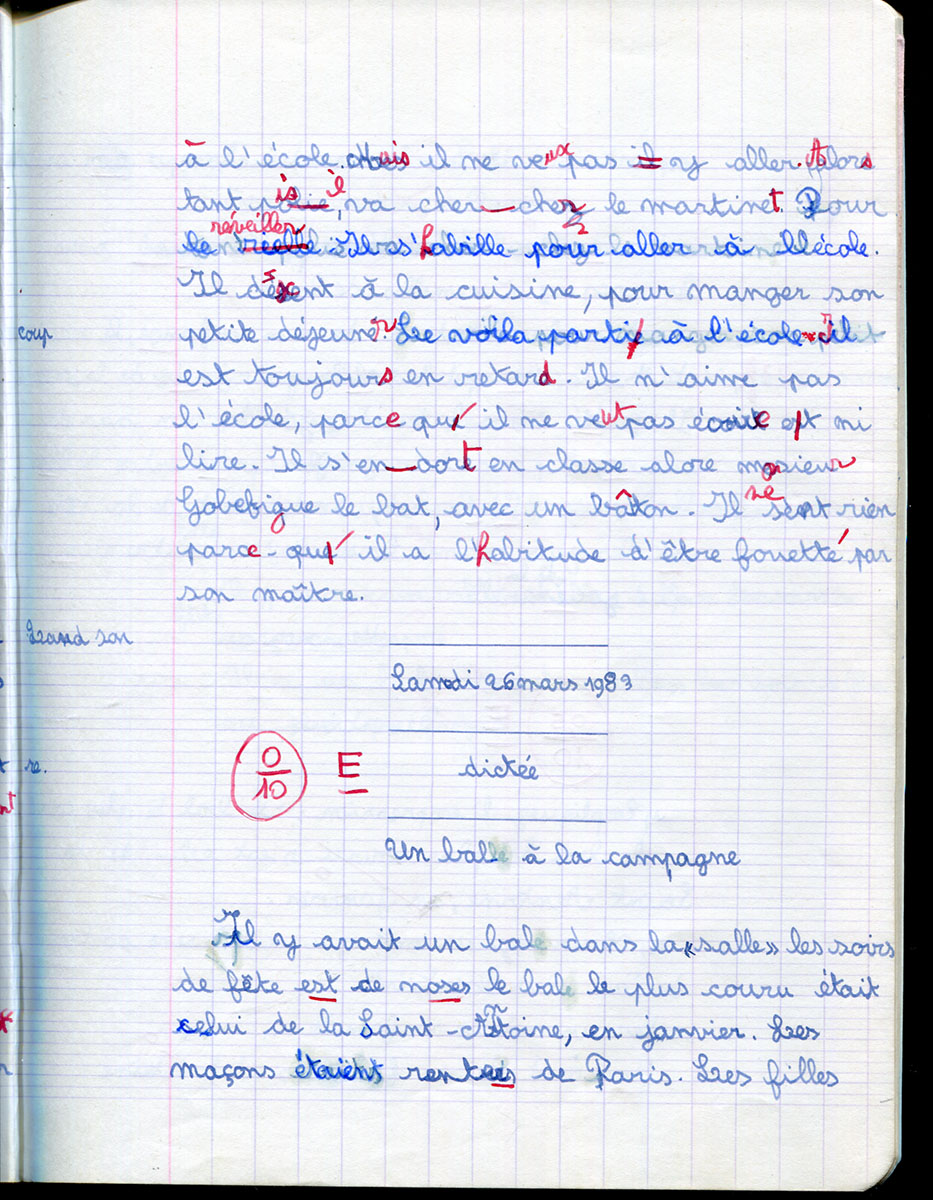 à l'école. Mais il ne veux pas il y aller. Alors
tant pis il, va cher cher le martinet. Pour
réveiller
le Il s'habille pour aller à l'école.
Il descent à la cuisine, pour manger son
petite déjeuner. Le voila parti à l'école il
est toujours en retard. Il n'aime pas
l'école, parce qu'il ne veut pas écrire et ni
lire. Il s'en dort en classe alore monsieur
Gobefigue le bat, avec un bâton. Il ne sent rien
parce-qu'il a l'habitude d'être fouetté par
son maître.
coup
Grand son
re.
Samedi 26 mars 1983
0/10 E dictée
Un bal à la campagne
Il y avait un bal dans la «salle» les soirs
de fête est de noses le bal le plus couru était
celui de la Saint-Antoine, en janvier. Les
maçons étaient rentrés de Paris. Les filles